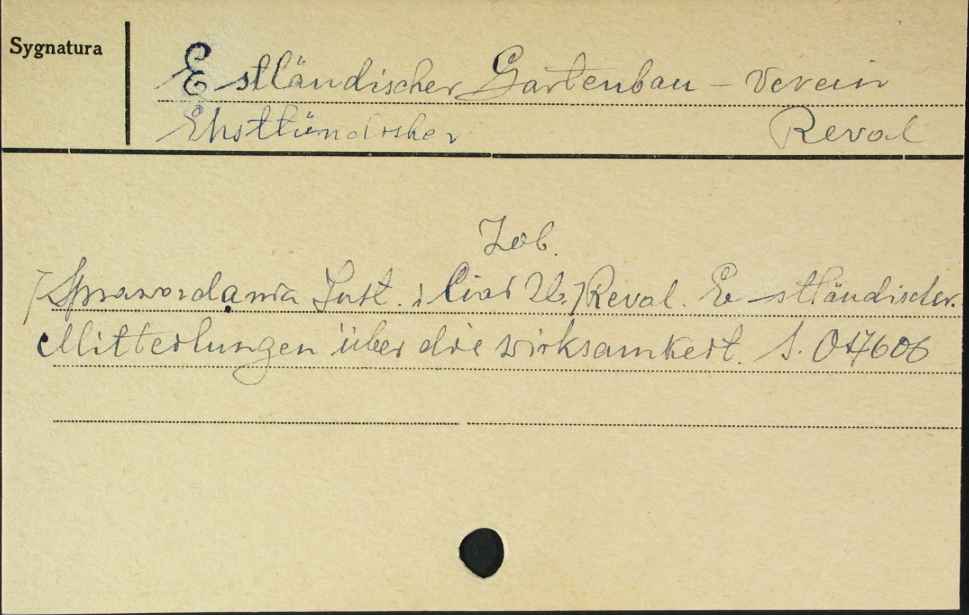 Sygnatura
Estländischer Gartenbau - Verein
Ehstländischer Reval
Zob.
[Sprawozdania Inst. i Tow.] Reval. Estländischer.
Mitteilungen über die wirksamkeit. S. 017606